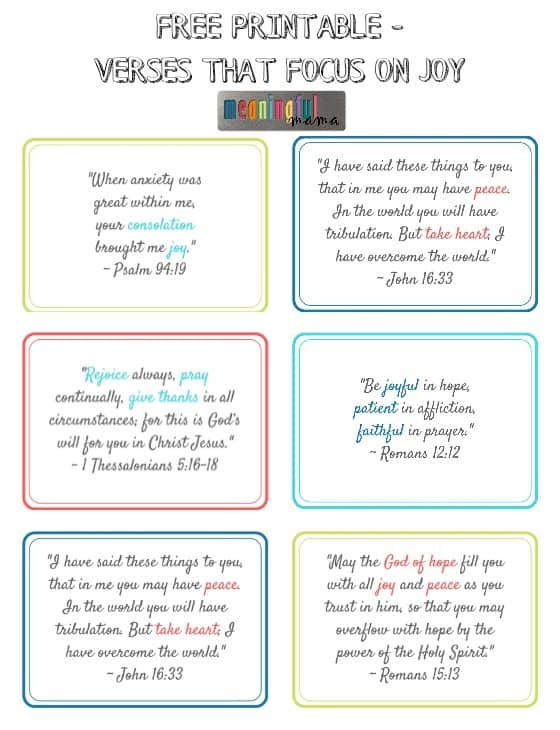 FREE PRINTABLE -
VERSES THAT FOCUS ON JOY
meaningful
mama
"When anxiety was
great within me,
your consolation
brought me joy."
~ Psalm 94:19
"I have said these things to you,
that in me you may have peace.
In the world you will have
tribulation. But take heart; I
have overcome the world."
~ John 16:33
"Rejoice always, pray
continually, give thanks in all
circumstances; for this is God's
will for you in Christ Jesus."
~ 1 Thessalonians 5:16-18
"Be joyful in hope,
patient in affliction,
faithful in prayer."
~ Romans 12:12
"I have said these things to you,
that in me you may have peace.
In the world you will have
tribulation. But take heart; I
have overcome the world."
~ John 16:33
"May the God of hope fill you
with all joy and peace as you
trust in him, so that you may
overflow with hope by the
power of the Holy Spirit."
~ Romans 15:13